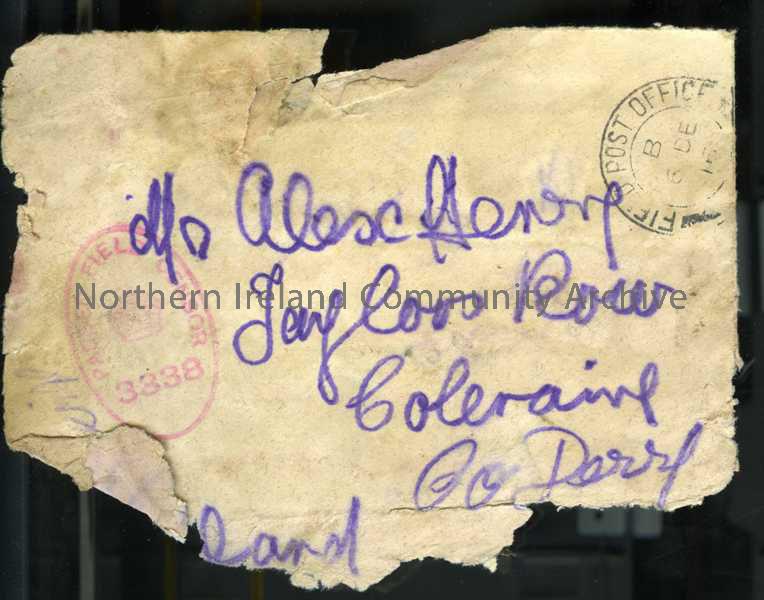 FIELD POST OFFICE
B
6 DE
15
M/s Alex Henry
Taylors Row
Coleraine
Co. Derry
land
PASSED FIELD CENSOR
3338
Northern Ireland Community Archive